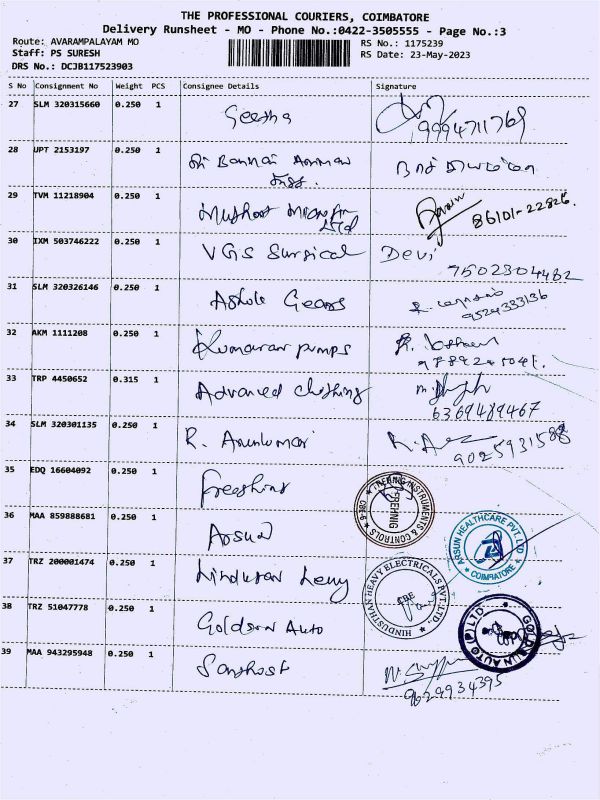 THE PROFESSIONAL COURIERS, COIMBATORE
Delivery Runsheet - MO - Phone No.:0422-3505555 - Page No.:3
Route: AVARAMPALAYAM MO
RS No.: 1175239
Staff: PS SURESH
RS Date: 23-May-2023
DRS No.: DCJB117523903
S No Consignment No Weight PCS Consignee Details Signature
27 SLM 320315660 0.250 1 Geetha
9994711769
28 UPT 2153197 0.250 1 Sri Bannari Amman
29 TVM 11218904 0.250 1 Muthoot Microfin 86101-22826
Ltd
30 IXM 503746222 0.250 1 VGS Surgical Devi
7502304482
31 SLM 320326146 0.250 1 Ashok Gears
9524333136
32 AKM 1111208 0.250 1 Kumaran pumps
33 TRP 4450652 0.315 1 Advanced clothing
6369489467
34 SLM 320301135 0.250 1 R. Arunkumar
9025931588
35 EDQ 16604092 0.250 1
FREHNIG INSTRUMENTS & CONTROLS
FREHNIG
CBE-6
36 MAA 859888681 0.250 1 Arsun
ARSUN HEALTHCARE PVT. LTD
COIMBATORE
37 TRZ 200001474 0.250 1 Hindustan Heavy
HINDUSTHAN HEAVY ELECTRICALS PVT. LTD.,
CBE
38 TRZ 51047778 0.250 1 Goldsun Auto
GOLDSUN AUTO (P) LTD
39 MAA 943295948 0.250 1
9629934395